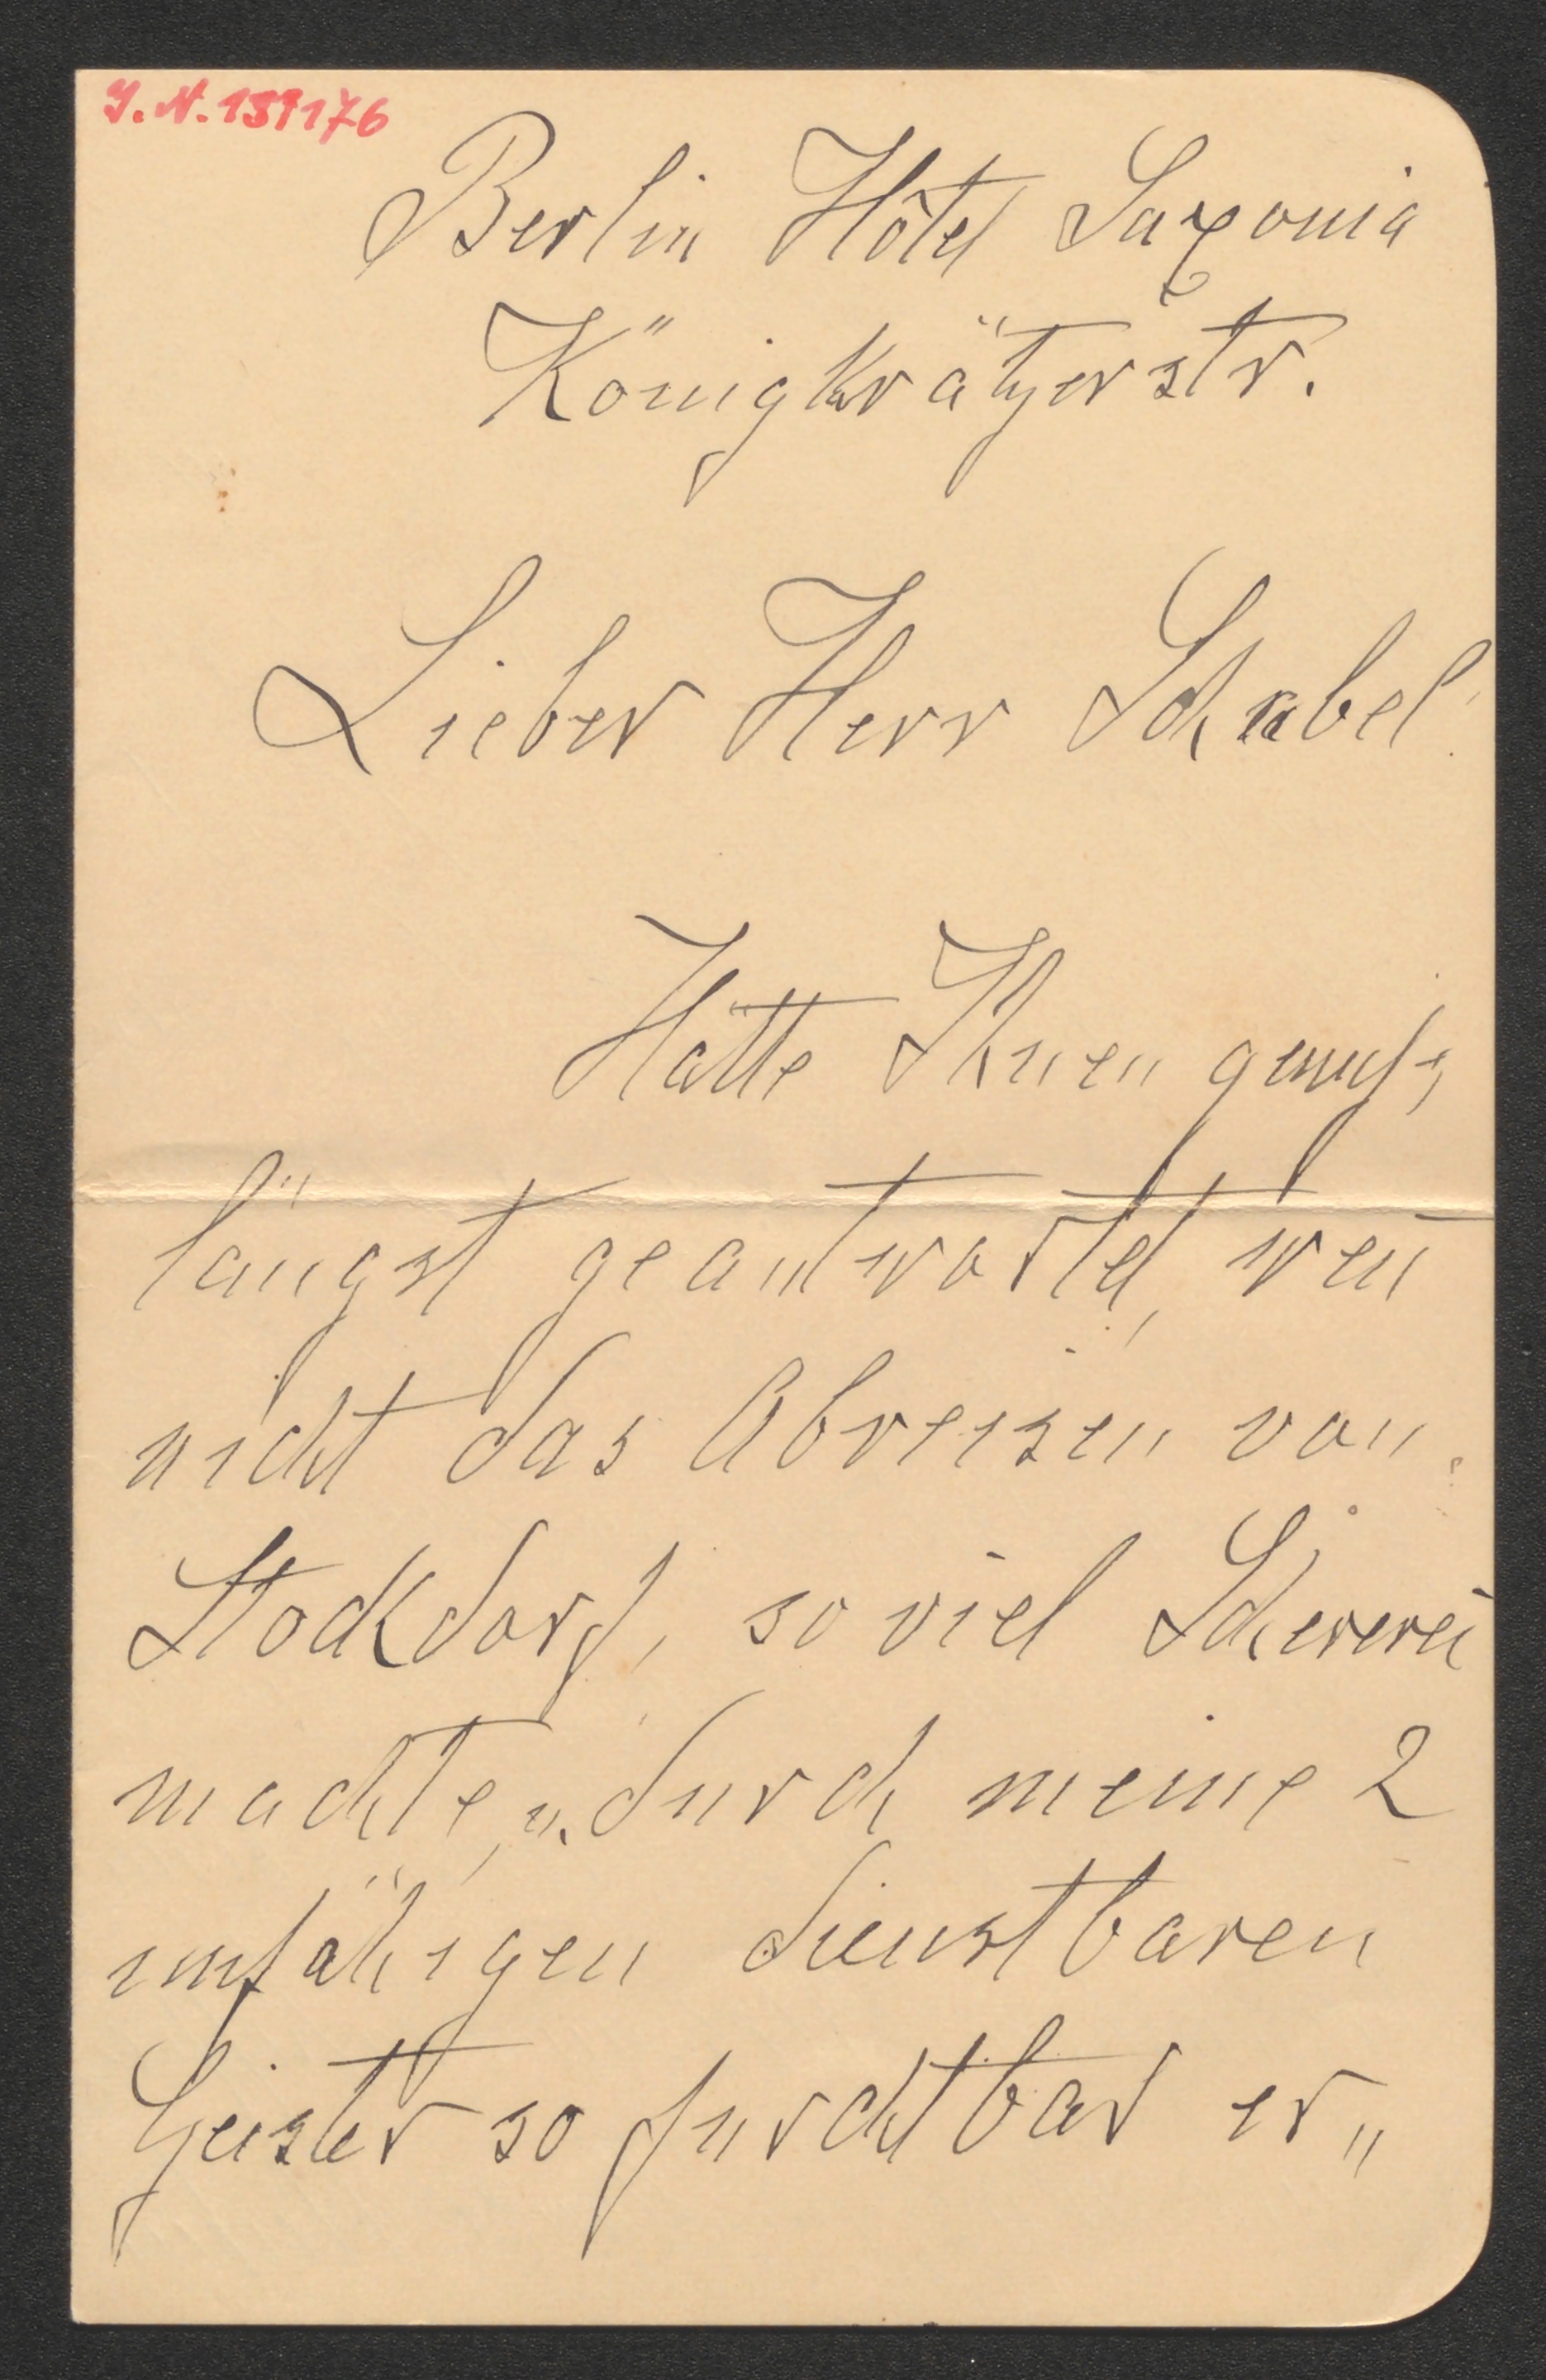 J.N. 139176
Berlin Hôtel Saxonia
Königkrätzerstr.
Lieber Herr Schnabel!
Hätte Ihnen gewiß,
längst geantwortet, weñ
nicht das Abreisen von
Stockdorf, so viel Schererei
machte, u. durch meine 2
unfähigen dienstbaren
Geister so furchtbar er„